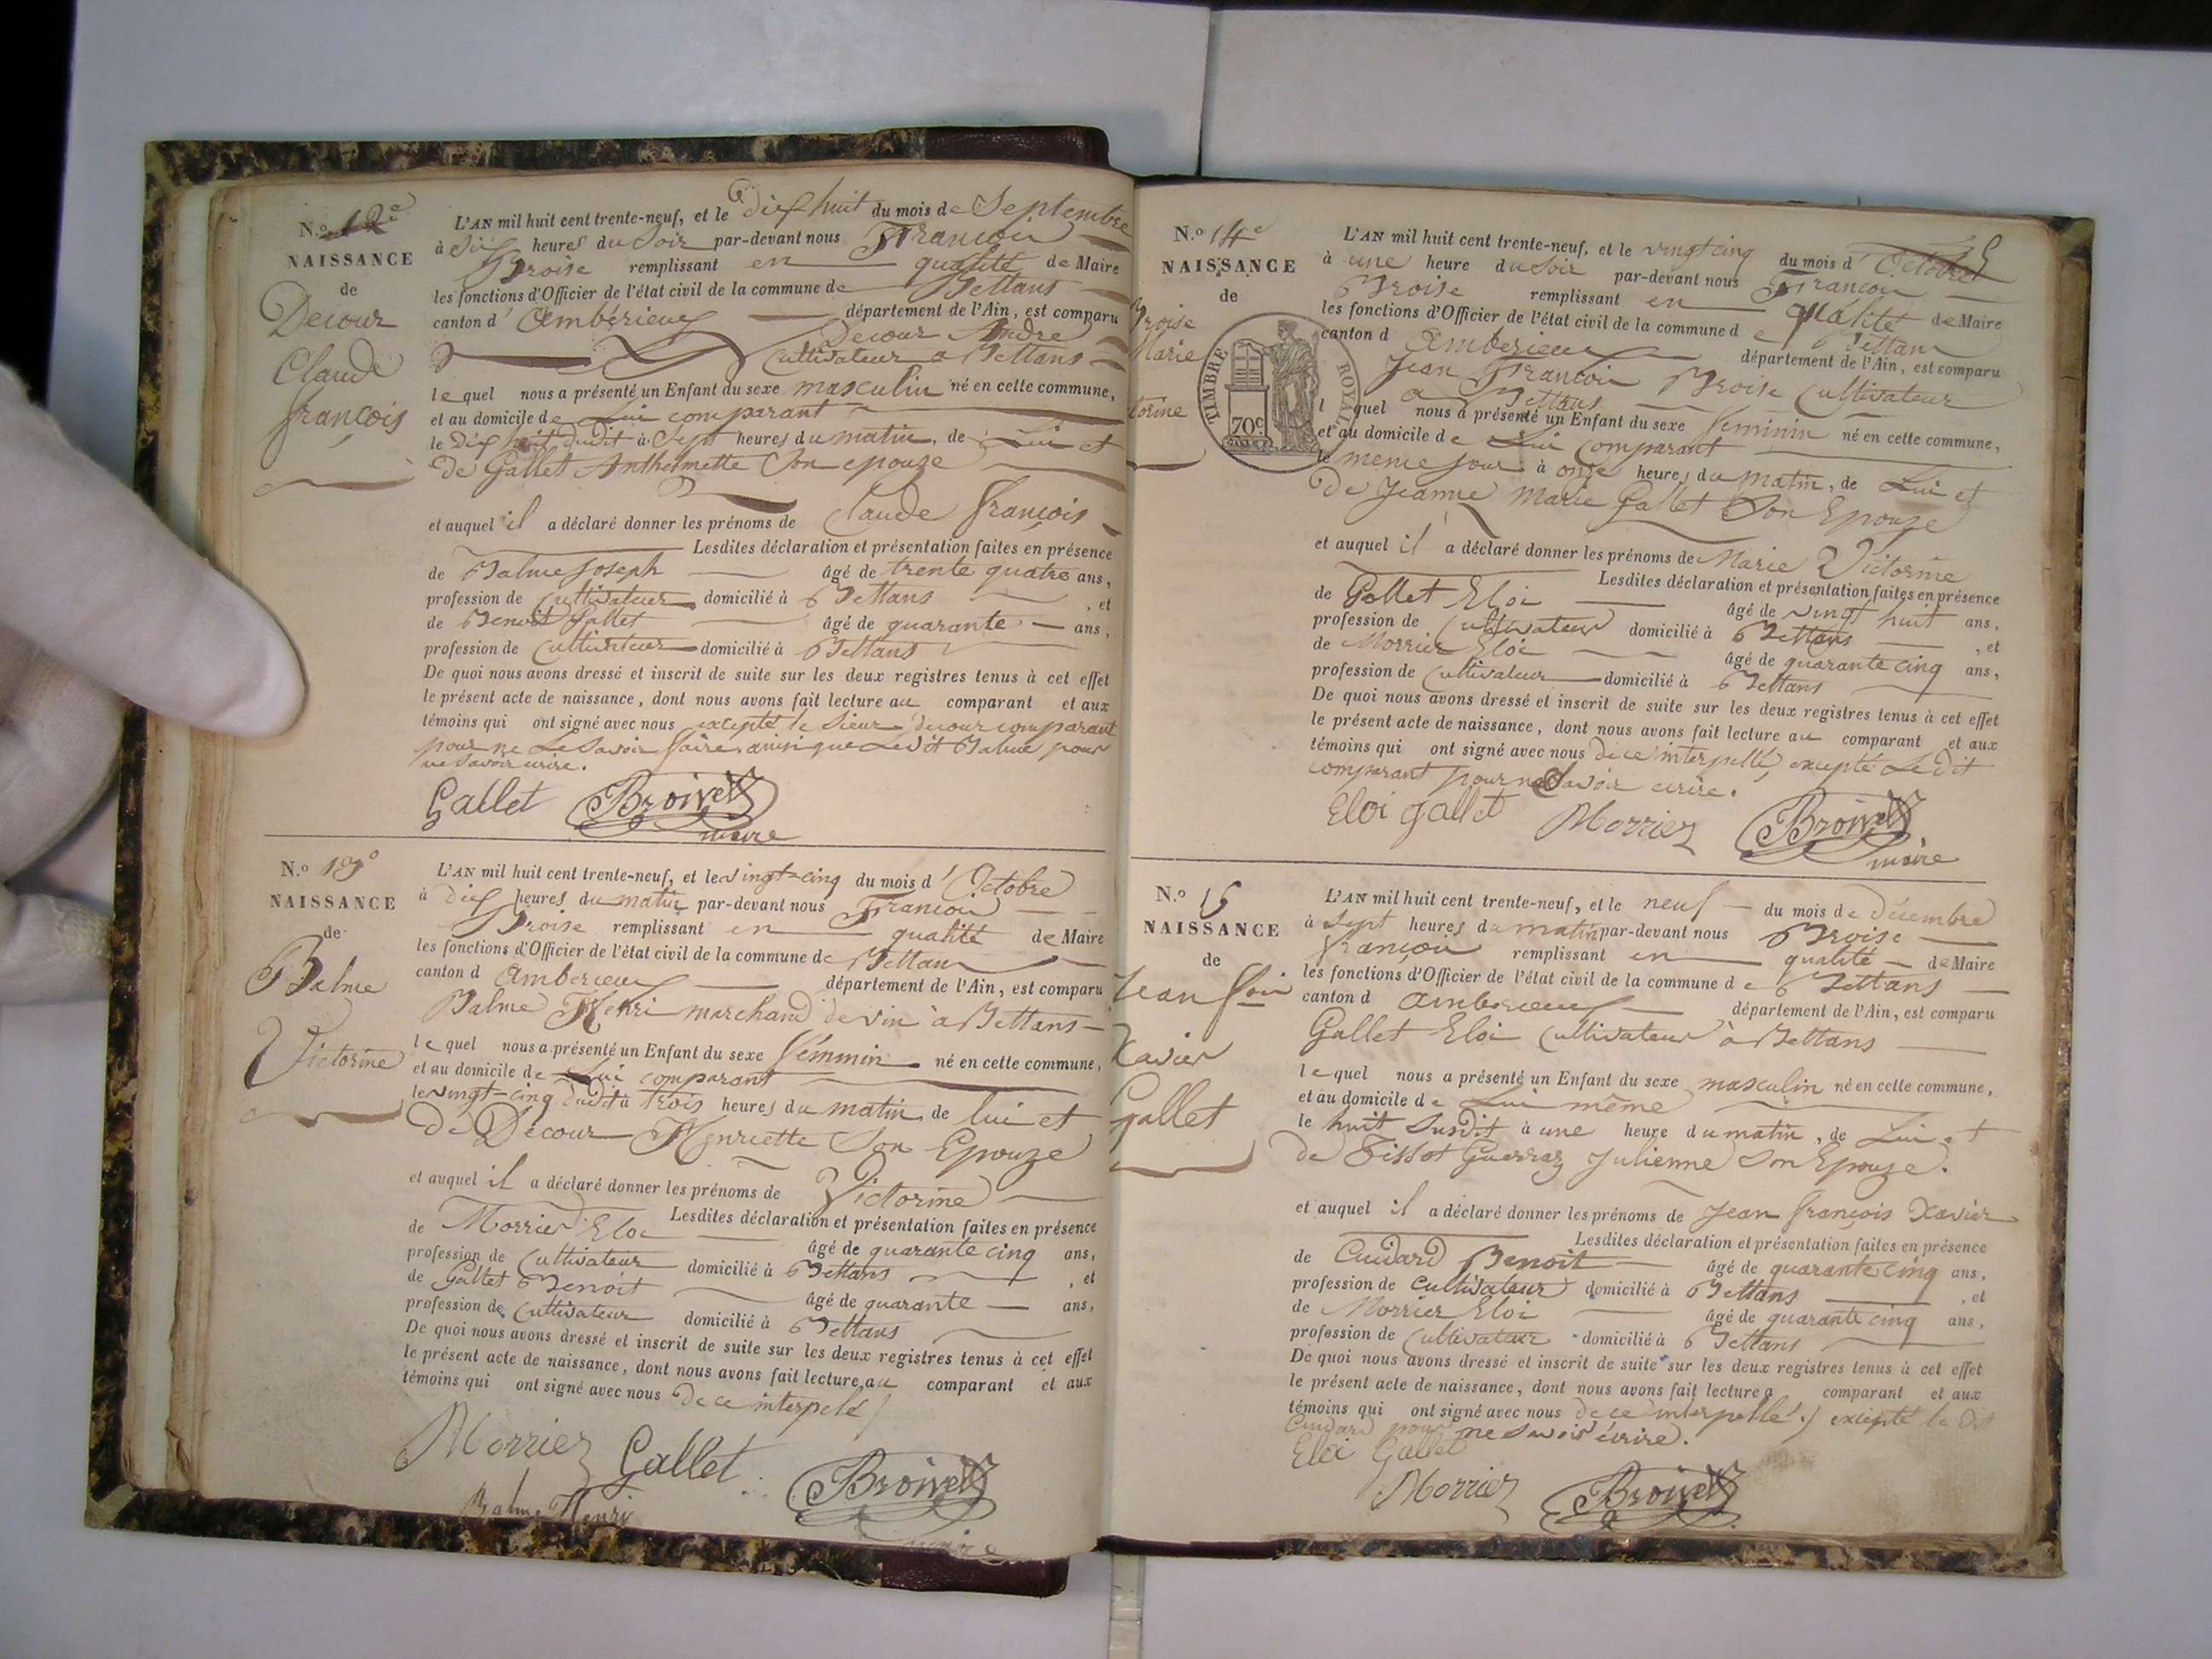 N.o 12e
NAISSANCE
de
Decour
Claude
françois
L'AN mil huit cent trente-neuf, et le dix huit du mois de Septembre
à Six heures du Soir par-devant nous François
Broise remplissant en qualité de Maire
les fonctions d'Officier de l'état civil de la commune de Bettans
canton d'Ambérieux département de l'Ain, est comparu
Decour Andre
Cultivateur a Bettans
lequel nous a présenté un Enfant du sexe masculin né en cette commune,
et au domicile de Lui comparant
le dix huit dudit à Sept heures du matin, de Lui et
de Gallet Anthelmette Son epouze
et auquel il a déclaré donner les prénoms de Claude françois
Lesdites déclaration et présentation faites en présence
de Balme Joseph âgé de trente quatre ans,
profession de Cultivateur domicilié à Bettans , et
de Benoit Gallet âgé de quarante ans,
profession de Cultivateur domicilié à Bettans
De quoi nous avons dressé et inscrit de suite sur les deux registres tenus à cet effet
le présent acte de naissance, dont nous avons fait lecture au comparant et aux
témoins qui ont signé avec nous excepté le Sieur Decour comparant
pour ne Le Savoir faire ainsi que Ledit Balme pour
ne Savoir ecrire.
Gallet Broise
maire
N.o 13e
NAISSANCE
de
Balme
Victorine
L'AN mil huit cent trente-neuf, et le vingt-cinq du mois d'Octobre
à dix heures du matin par-devant nous François
Broise remplissant en qualité de Maire
les fonctions d'Officier de l'état civil de la commune de Bettans
canton d Amberieux département de l'Ain, est comparu
Balme Henri marchand de vin à Bettans
lequel nous a présenté un Enfant du sexe féminin né en cette commune,
et au domicile de Lui comparant
le vingt-cinq dudit à trois heures du matin de lui et
de Decour Henriette Son Epouze
et auquel il a déclaré donner les prénoms de Victorine
Lesdites déclaration et présentation faites en présence
de Morrier Eloi âgé de quarante cinq ans,
profession de Cultivateur domicilié à Bettans , et
de Gallet Benoit âgé de quarante ans,
profession de Cultivateur domicilié à Bettans
De quoi nous avons dressé et inscrit de suite sur les deux registres tenus à cet effet
le présent acte de naissance, dont nous avons fait lecture au comparant et aux
témoins qui ont signé avec nous de ce interpelé
Morrier Gallet Broise
Balme Henri
maire
N.o 14e
NAISSANCE
de
Broise
Marie
torine
TIMBRE ROYAL
70c
L'AN mil huit cent trente-neuf, et le vingt cinq du mois d'Octobre
à une heure du Soir par-devant nous François
Broise remplissant en qualité de Maire
les fonctions d'Officier de l'état civil de la commune de Bettans
canton d Amberieux département de l'Ain, est comparu
Jean François Broise Cultivateur
a Bettans
l quel nous a présenté un Enfant du sexe feminin né en cette commune,
et au domicile de Lui Comparant
le meme jour à onze heures du matin, de Lui et
de Jeanne Marie Gallet Son Epouze
et auquel il a déclaré donner les prénoms de Marie Victorine
Lesdites déclaration et présentation faites en présence
de Gallet Eloi âgé de vingt huit ans,
profession de Cultivateur domicilié à Bettans , et
de Morrier Eloi âgé de quarante cinq ans,
profession de Cultivateur domicilié à Bettans
De quoi nous avons dressé et inscrit de suite sur les deux registres tenus à cet effet
le présent acte de naissance, dont nous avons fait lecture au comparant et aux
témoins qui ont signé avec nous de ce interpellé, excepté Le dit
comparant pour ne Savoir ecrire.
Eloi gallet Morrier Broise
maire
N.o 15
NAISSANCE
de
Jean fcois
Xavier
Gallet
L'AN mil huit cent trente-neuf, et le neuf du mois de décembre
à Sept heures du matin par-devant nous Broise
françois remplissant en qualité de Maire
les fonctions d'Officier de l'état civil de la commune de Bettans
canton d amberieux département de l'Ain, est comparu
Gallet Eloi Cultivateur à Bettans
lequel nous a présenté un Enfant du sexe masculin né en cette commune,
et au domicile de Lui même
le huit Susdit à une heure du matin, de Lui et
de Tissot Guerraz Julienne Son Epouze.
et auquel il a déclaré donner les prénoms de Jean françois Xavier
Lesdites déclaration et présentation faites en présence
de Cudard Benoit âgé de quarante cinq ans,
profession de Cultivateur domicilié à Bettans , et
de Morrier Eloi âgé de quarante cinq ans,
profession de Cultivateur domicilié à Bettans
De quoi nous avons dressé et inscrit de suite sur les deux registres tenus à cet effet
le présent acte de naissance, dont nous avons fait lecture a comparant et aux
témoins qui ont signé avec nous de ce interpellé .) excepté le dit
Cudard pour ne Savoir écrire.
Eloi Gallet
Morrier Broise